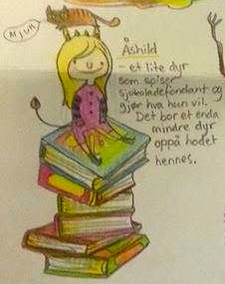 Mjuk
Åshild
– et lite dyr
som spiser
sjokoladefondant og
gjør hva hun vil.
Det bor et enda
mindre dyr
oppå hodet
hennes.